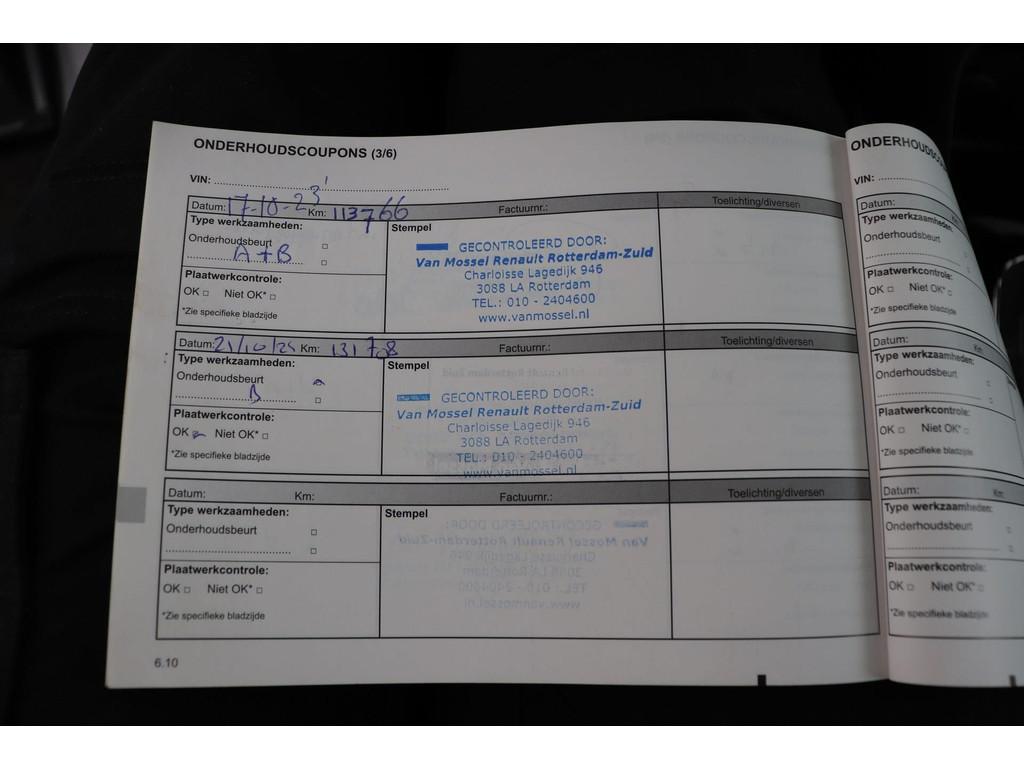 ONDERHOUDSCOUPONS (3/6)
VIN:
Datum: 17-10-23 Km: 113766 Factuurnr.: Toelichting/diversen
Type werkzaamheden:
Onderhoudsbeurt
A+B
Plaatwerkcontrole:
OK □ Niet OK* □
*Zie specifieke bladzijde
Stempel
GECONTROLEERD DOOR:
Van Mossel Renault Rotterdam-Zuid
Charloisse Lagedijk 946
3088 LA Rotterdam
TEL.: 010 - 2404600
www.vanmossel.nl
Datum: 21/10/24 Km: 131708 Factuurnr.: Toelichting/diversen
Type werkzaamheden:
Onderhoudsbeurt
B
Plaatwerkcontrole:
OK Niet OK* □
*Zie specifieke bladzijde
Stempel
GECONTROLEERD DOOR:
Van Mossel Renault Rotterdam-Zuid
Charloisse Lagedijk 946
3088 LA Rotterdam
TEL.: 010 - 2404600
www.vanmossel.nl
Datum: Km: Factuurnr.: Toelichting/diversen
Type werkzaamheden:
Onderhoudsbeurt
Plaatwerkcontrole:
OK □ Niet OK* □
*Zie specifieke bladzijde
Stempel
6.10
VIN:
Datum: Km
Type werkzaamheden:
Onderhoudsbeurt
Plaatwerkcontrole:
OK □ Niet OK* □
*Zie specifieke bladzijde
Datum: Km
Type werkzaamheden:
Onderhoudsbeurt
Plaatwerkcontrole:
OK □ Niet OK* □
*Zie specifieke bladzijde
Datum: Km:
Type werkzaamheden:
Onderhoudsbeurt
Plaatwerkcontrole:
OK □ Niet OK* □
*Zie specifieke bladzijde